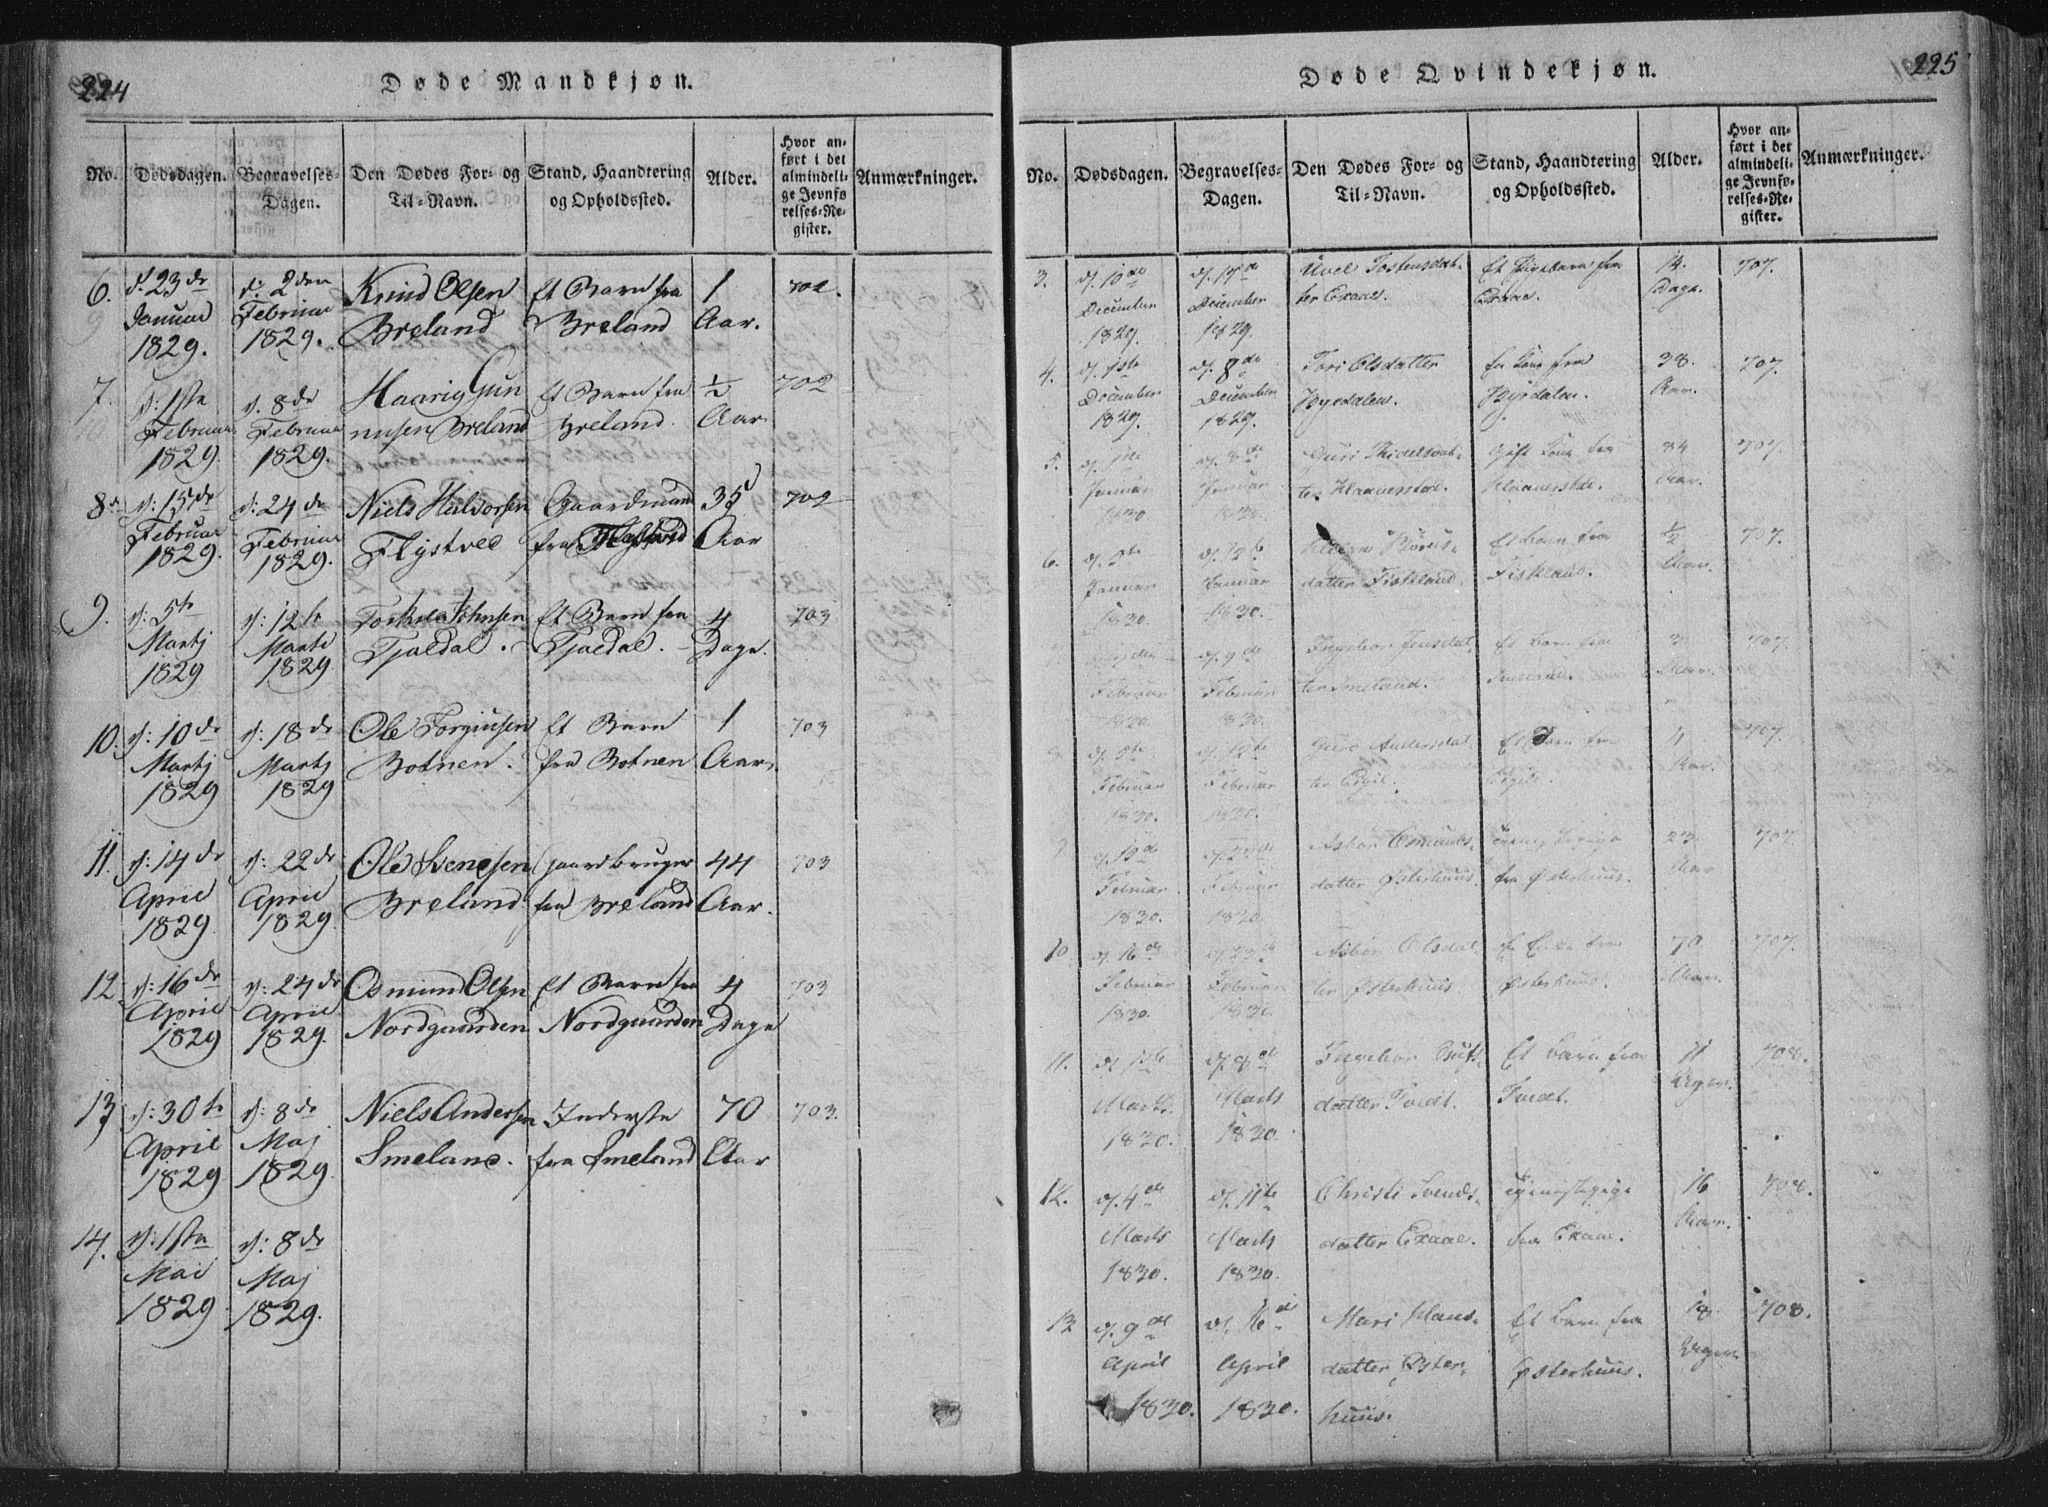 224
Døde Mandkjøn.
No. Dødsdagen. Begravelses-Dagen. Den Dødes For- og Til-Navn. Stand, Haandtering og Opholdssted. Alder. Hvor anført i det almindelige Jevnførelses-Register. Anmærkninger.
6. d. 23de d: 2den Knud Olsen Et Barn fra 1 702.
Januar Februar Breland Breland Aar.
1829. 1829.
7. d: 1ste d. 8de Haarig Gun Et Barn fra ½ 702
Februar Februar nusen Breland Breland. Aar
1829. 1829.
8. d: 15de d: 24de Niels Halvorsen Gaardmand 35 702
Februar Februar Flystved fra Aar
1829. 1829.
9. d: 5te d: 12te Et Barn fra 4 703
Martj Marti Tjaldal. Tjaldal. Dage.
1829 1829
10. d: 10de d: 18de Ole Torgiusen Et Barn 1 703
Martj Martj Botnen. fra Botnen Aar.
1829 1829
11. d: 14de d: 22de Ole Svensen Gaardbruger 44 703
April April Breland fra Breland Aar.
1829 1829.
12. d: 16de d: 24de Osmund Olsen Et Barn fra 4 703
April April Nordgaarden Nordgaarden Dage
1829 1829.
13 d: 30te d: 8de Niels Andersen Inderste 70 703.
April Maj Smeland. fra Smeland Aar
1829 1829.
14. d: 1ste d: 8de
Mai Maj
1829 1829.
225
Døde Qvindekjøn.
No. Dødsdagen. Begravelses-Dagen. Den Dødes For- og Til-Navn. Stand, Haandtering og Opholdssted. Alder. Hvor anført i det almindelige Jevnførelses-Register. Anmærkninger.
3. d. 10de d. 17de Tostensdat- Et Pigebarn fra 14. 707.
December December ter Exaae. Exaae. Dage.
1829. 1829.
4. d. 1ste d. 8de Tori Olsdatter En Kone fra 38. 707.
December December Aar.
1829. 1829.
5. d. d. 8de Guri 84 707.
Januar Januar ter Aar.
1830 1830.
6. d. 5te d. 12te Et Barn fra ½ 707.
Januar Januar datter Fiskland. Fiskland. Aar.
1830. 1830.
d. 9de Ingebor Jensdat- Et Barn fra 3 707.
Februar Februar ter Smeland. Smeland. Aar.
1830. 1830.
8 d. 5te d. 12te Guro Andersdat- Et Barn fra 4 707.
Februar Februar ter Aar.
1830. 1830.
d. Asbor Osmunds- 23. 707.
Februar Februar datter Østerhuus. fra Østerhuus. Aar
1830. 1830
10. d. 16de d. 23de Asbor Olsdat- fra 70. 707.
Februar Februar ter Østerhuus. Østerhuus. Aar.
1830. 1830.
11. d. 1ste d. 8de Ingebor Et Barn fra 11 708.
Marts. Marts datter Tveit. Tveit. Uger.
1830. 1830.
12. d. 4de d. 11te Christi Svends- 16 708.
Marts Marts datter Exaae. fra Exaae. Aar.
1830. 1830.
13 d. 9de d. 16de Mari Klaus- Et Barn fra 18. 708.
April April datter Øster- Østerhuus. Uger
1830. 1830. huus.